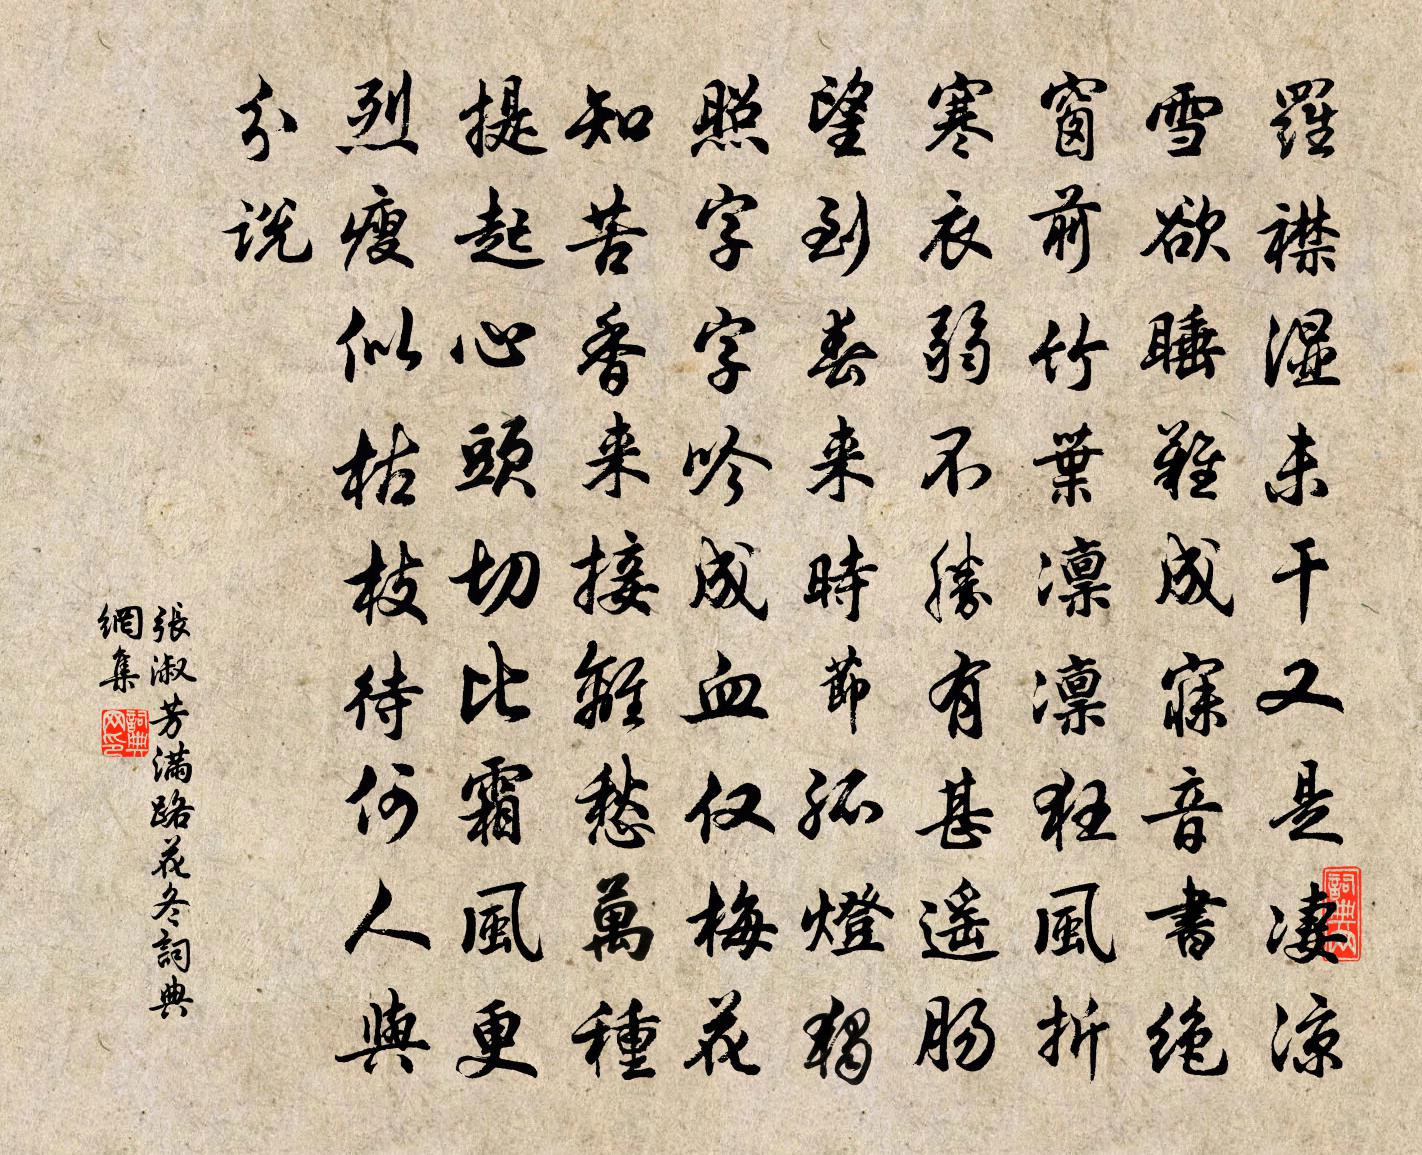 羅襟湿未干又是凄涼
雪欲睡難成寐音書绝
窗前竹葉凛凛狂風折
寒衣弱不勝有甚遥肠
望到春来時節孤燈獨
照字字吟成血仅梅花
知苦香来接離愁萬種
提起心頭切比霜風更
烈瘦似枯枝待何人與
分说
張淑芳满路花冬詞典
網集
詞典網
詞典网印